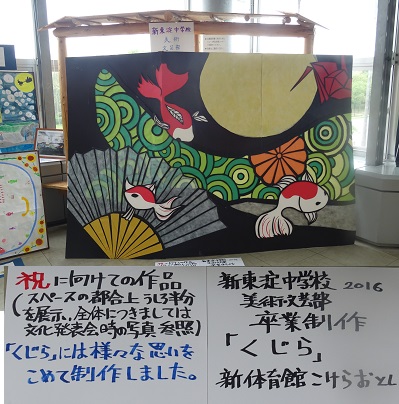 新東淀中学校
美術
文芸部
祝に向けての作品
(スペースの都合上うしろ半分
を展示、全体につきましては
文化発表会時の写真参照)
「くじら」には様々な思いを
こめて制作しました。
新東淀中学校 2016
美術・文芸部
卒業制作
「くじら」
新体育館こけらおとし